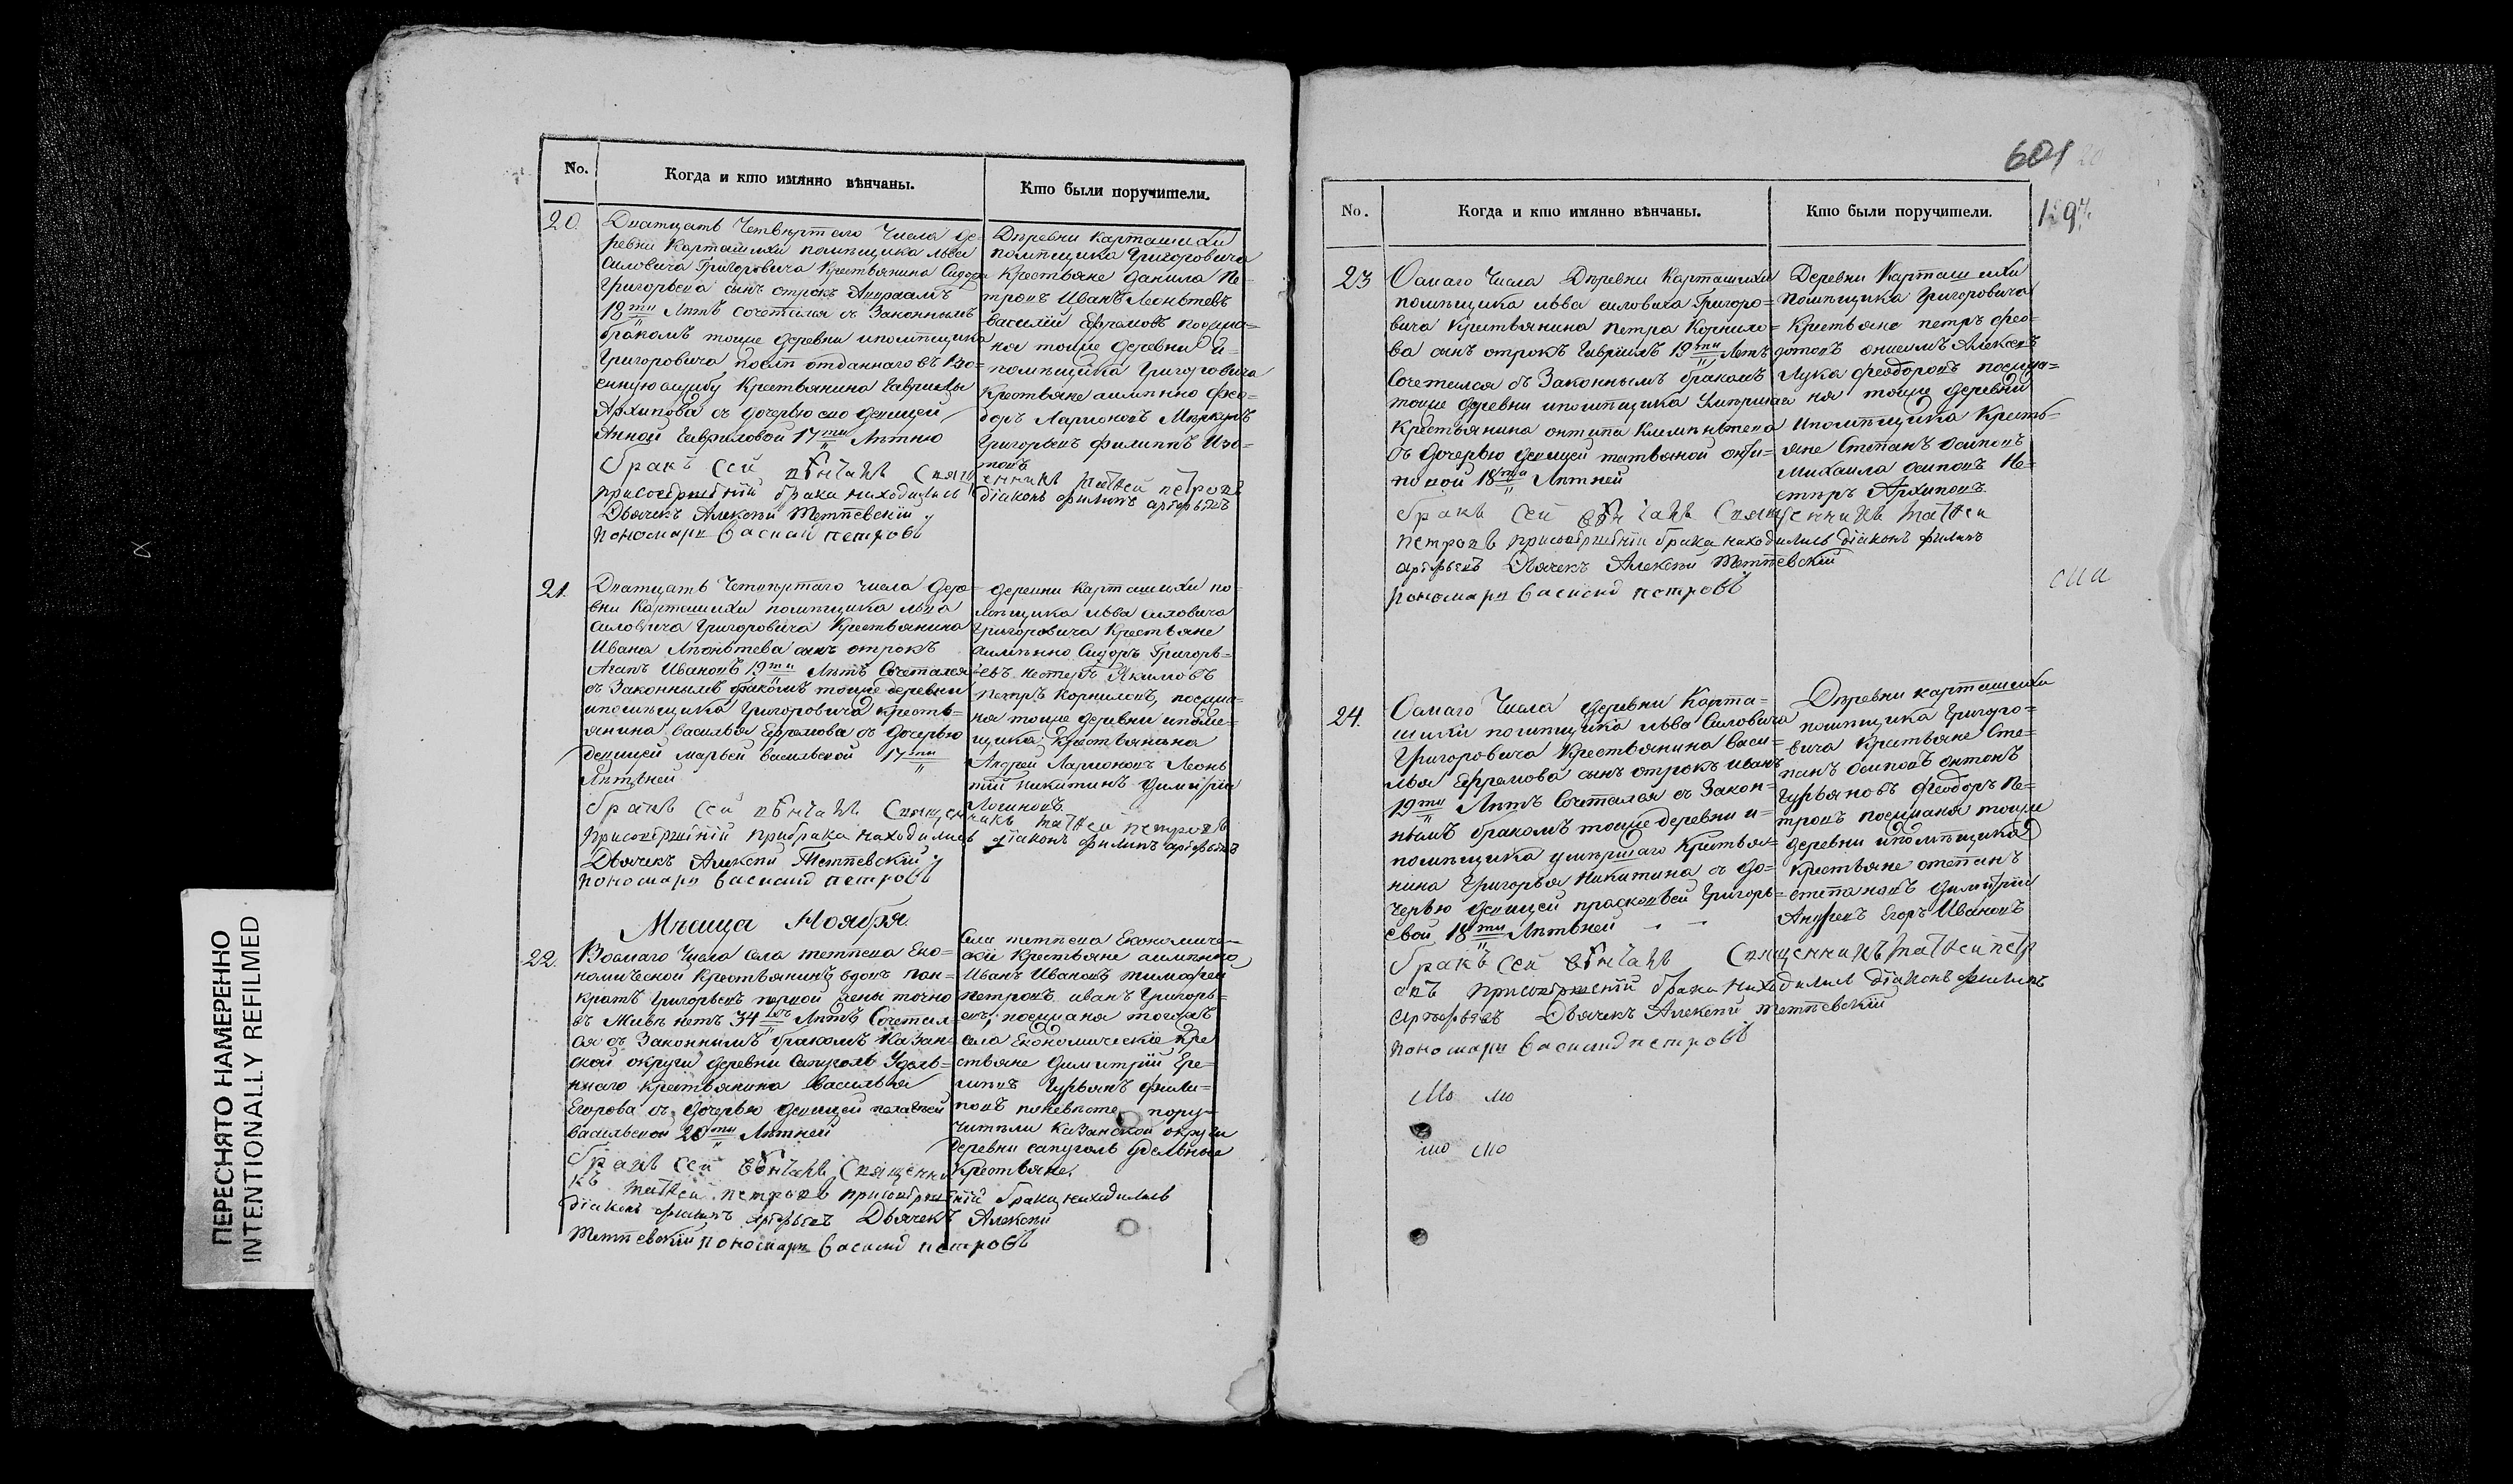 No.
Когда и кто имянно вѣнчаны.
Кто были поручители.
20.
Дватцать Четвѣртаго Числа де-
ревни Карташихи помѣщика льва
Силовича Григоровича Крестьянина Сидора
Григорьева сынъ отрокъ Авираамъ
18ти Лѣтъ сочетался съ Законнымъ
бракомъ тоцже деревни ипомѣщика
Григоровича послѣ отданнаго въ Во-
енную службу Крестьянина Гаврилы
Архипова съ дочерью ево девицей
Анной Гавриловой 17ти Лѣтнею
бракъ сей вѣнчалъ Священникъ Матвей петровъ
присовѣршенїи брака находились дїаконъ филипъ
Дьячекъ Алексѣй Тетѣевскїй
пономарь Василий петровъ
Дѣревни Карташихи
помѣщика Григоровича
Крестьяне данила Пе-
тровъ Иванъ Леоньтевъ
василїй Ефремовъ посцма-
ня тоцже деревни и-
помѣщика Григоровича
Крестьяне аимѣнно Фео-
доръ Ларионовъ Меркулъ
Григорьевъ филиппъ Изо-
товъ
21.
Дватцать Четвѣртаго числа дере-
вни Карташихи помѣщика льва
Силовича Григоровича Крестьянина
Ивана Лѣоньтева сынъ отрокъ
Агапъ Ивановъ 19ти Лѣтъ Сочетался
съ Законнымъ бракомъ тоцже деревни
ипомѣщика Григоровича кресть-
янина Василья Ефремова съ дочерью
девицей марьей Васильевой 17ти
Лѣтьней
бракъ сей вѣнчалъ Священникъ Матвей петровъ
присовѣршенїи прибрака находились дїаконъ филипъ
Дьячекъ Алексѣй Тетѣевский
пономарь Василий петровъ
деревни Карташихи по-
мѣщика льва силовича
Григоровича Крестьяне
аимѣнно Сидоръ Григорь-
евъ нестеръ Якимовъ
петръ Корниловъ, посцма-
ня тоцже деревни ипоме-
щика Крестьянина
Андрей Ларионовъ Леонь
тїй никитинъ димитрїй
Логиновъ
Мѣсяца Ноября
22.
Восмаго Числа села тетѣева Еко-
номической Крестьянинъ вдовъ пан-
кратъ Григорьевъ первой жены точно
въ Живѣ нетъ 34 Лѣтъ Сочетал-
ся съ Законнымъ бракомъ Казан-
ской округи деревни Сапуголь Удель-
ннаго крестьянина Василья
Егорова съ дочерью девицей пелагеей
Васильевой 20ти Лѣтней
бракъ сей вѣнчалъ Священни
къ Матвей петровъ присовѣршенїй брака находились
дїаконъ филипъ Дьячекъ Алексѣй
Тетѣевскїй пономарь Василий петровъ
Села тетѣева Економиче-
скїя Крестьяне аимѣнно
Иванъ Ивановъ тимофей
петровъ иванъ Григорь-
евъ, посцманя тогожъ
села Економическїе Кре
стьяне Димитрїй Ере-
минъ Гурьянъ фили-
повъ поневѣсте пору-
чители Казанской округи
деревни сапуголь удельные
Крестьяне.
601
No.
Когда и кто имянно вѣнчаны.
Кто были поручители.
23
Осмаго Числа Дѣревни Карташихи
помѣщика льва силовича Григоро-
вича Крестьянина петра Корнило-
ва сынъ отрокъ Гаврїилъ 19ти Летъ
Сочетался съ Законнымъ бракомъ
тоцже деревни ипомѣщика Умѣршаго
Крестьянина онтипа Клемѣнтева
съ дочерью девицей татьяной онти-
повой 18ти Лѣтней
бракъ сей вѣнчалъ Священникъ Матвей
петровъ присовѣршенїи брака находились дїаконъ филипъ
Дьячекъ Алексѣй Тетѣевскїй
пономарь Василий петровъ
Деревни Карташихи
Помѣщика Григоровича
Крестьяне петръ фео-
дотовъ онисимъ Алексѣевъ
Лука феодоровъ посцма-
ня тоцже деревни
ипомѣщика Кресть-
яне Степанъ осиповъ
михаила осиповъ Не-
стеръ Архиповъ
24.
Осмаго Числа деревни Карта-
шихи помѣщика льва Силовича
Григоровича Крестьянина Васи-
лья Ефремова сынъ отрокъ Иванъ
19ти Лѣтъ Сочетался съ Закон-
нымъ бракомъ тоцже деревни и-
помѣщика умѣршаго Крестья-
нина Григорья Никитина съ до-
черью девицей прасковьей Григорь-
евой 18ти Лѣтьней
бракъ сей вѣнчалъ Священникъ Матвей петр
овъ присовѣршенїи брака находились дїаконъ филипъ
Дьячекъ Алексѣй Тетѣевскїй
пономарь Василий петровъ
Дѣревни карташихи
помѣщика Григоро-
вича Крестьяне Сте-
панъ осиповъ онтонъ
Гурьяновъ феодоръ Пе-
тровъ посцманя тоцже
деревни ипомѣщика
Крестьяне степанъ
степановъ димитрїй
Андреевъ Егоръ Ивановъ
ПЕРЕСНЯТО НАМЕРЕННО
INTENTIONALLY REFILMED